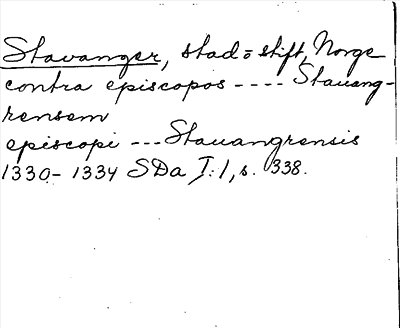 Stavanger, stad o stift, Norge
contra episcopos ---- Stauang-
rensem
episcopi --- Stauangrensis
1330-1334 SDa I:1, s. 338.